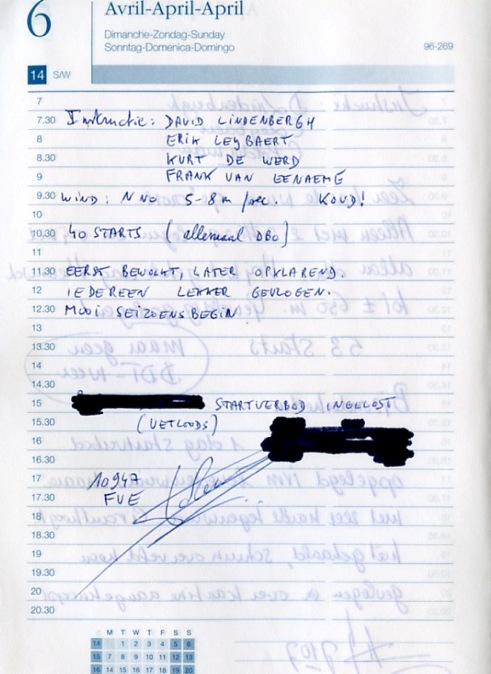 6
Avril-April-April
Dimanche-Zondag-Sunday
Sonntag-Domenica-Domingo
96-269
14 S/W
7
7.30 Instructie: DAVID LINDENBERGH
8 ERIK LEYBAERT
8.30 KURT DE WERD
9 FRANK VAN EENAEME
9.30 WIND: NNO 5-8 m/sec. KOUD!
10
10.30 40 STARTS (allemaal DBO)
11
11.30 EERST BEWOLKT, LATER OPKLAREND.
12 IEDEREEN LEKKER GEVLOGEN.
12.30 MOOI SEIZOENSBEGIN
13
13.30
14
14.30
15 STARTVERBOD INGELOST
15.30 (VETLOODS)
16
16.30
17 10947
17.30 FVE
18
18.30
19
19.30
20
20.30
M T W T F S S
14 1 2 3 4 5 6
15 7 8 9 10 11 12 13
16 14 15 16 17 18 19 20